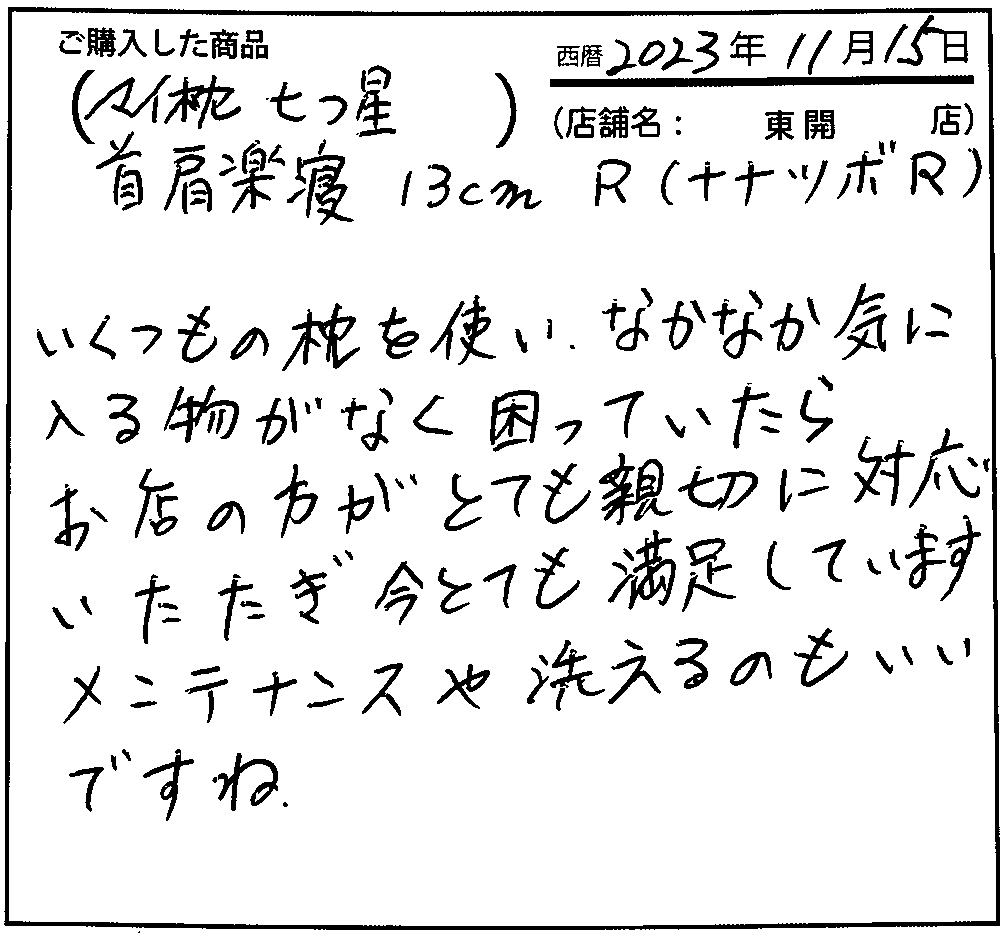 ご購入した商品
西暦 2023年 11月15日
(マイ枕 七つ星 )
(店舗名: 東開 店)
首肩楽寝 13cm R (ナナツボR)
いくつもの枕を使い、なかなか気に
入る物がなく困っていたら
お店の方がとても親切に対応
いたたぎ今とても満足しています
メンテナンスや洗えるのもいい
ですね.